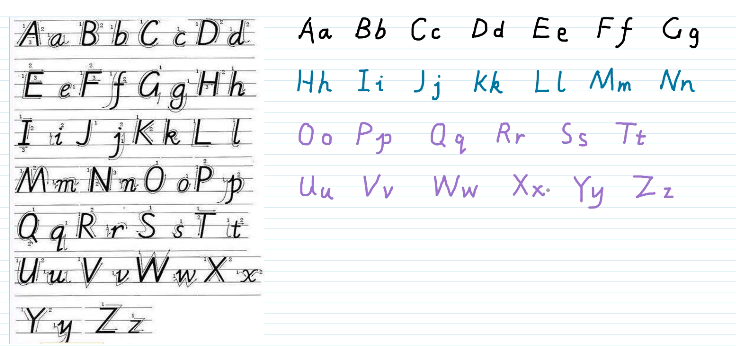 Aa Bb Cc Dd
Ee Ff Gg Hh
Ii Jj Kk Ll
Mm Nn Oo Pp
Qq Rr Ss Tt
Uu Vv Ww Xx
Yy Zz
Aa Bb Cc Dd Ee Ff Gg
Hh Ii Jj Kk Ll Mm Nn
Oo Pp Qq Rr Ss Tt
Uu Vv Ww Xx. Yy Zz